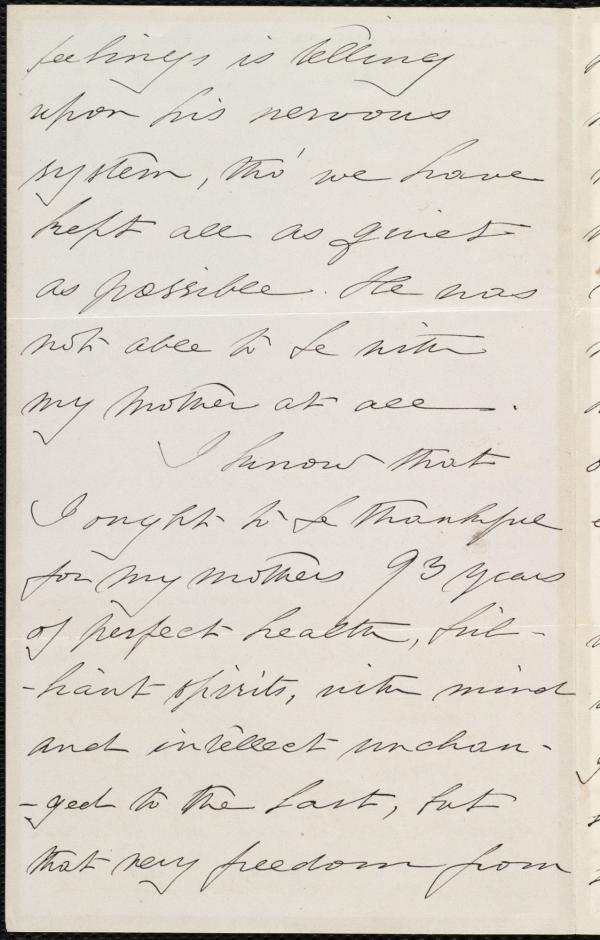 feelings is telling
upon his nervous
system, tho' we have
kept all as quiet
as possible. He was
not able to be with
my mother at all.
I know that
I ought to be thankful
for my mothers 93 years
of perfect health, bril-
-liant spirits, with mind
and intellect unchan-
-ged to the last, but
that very freedom from